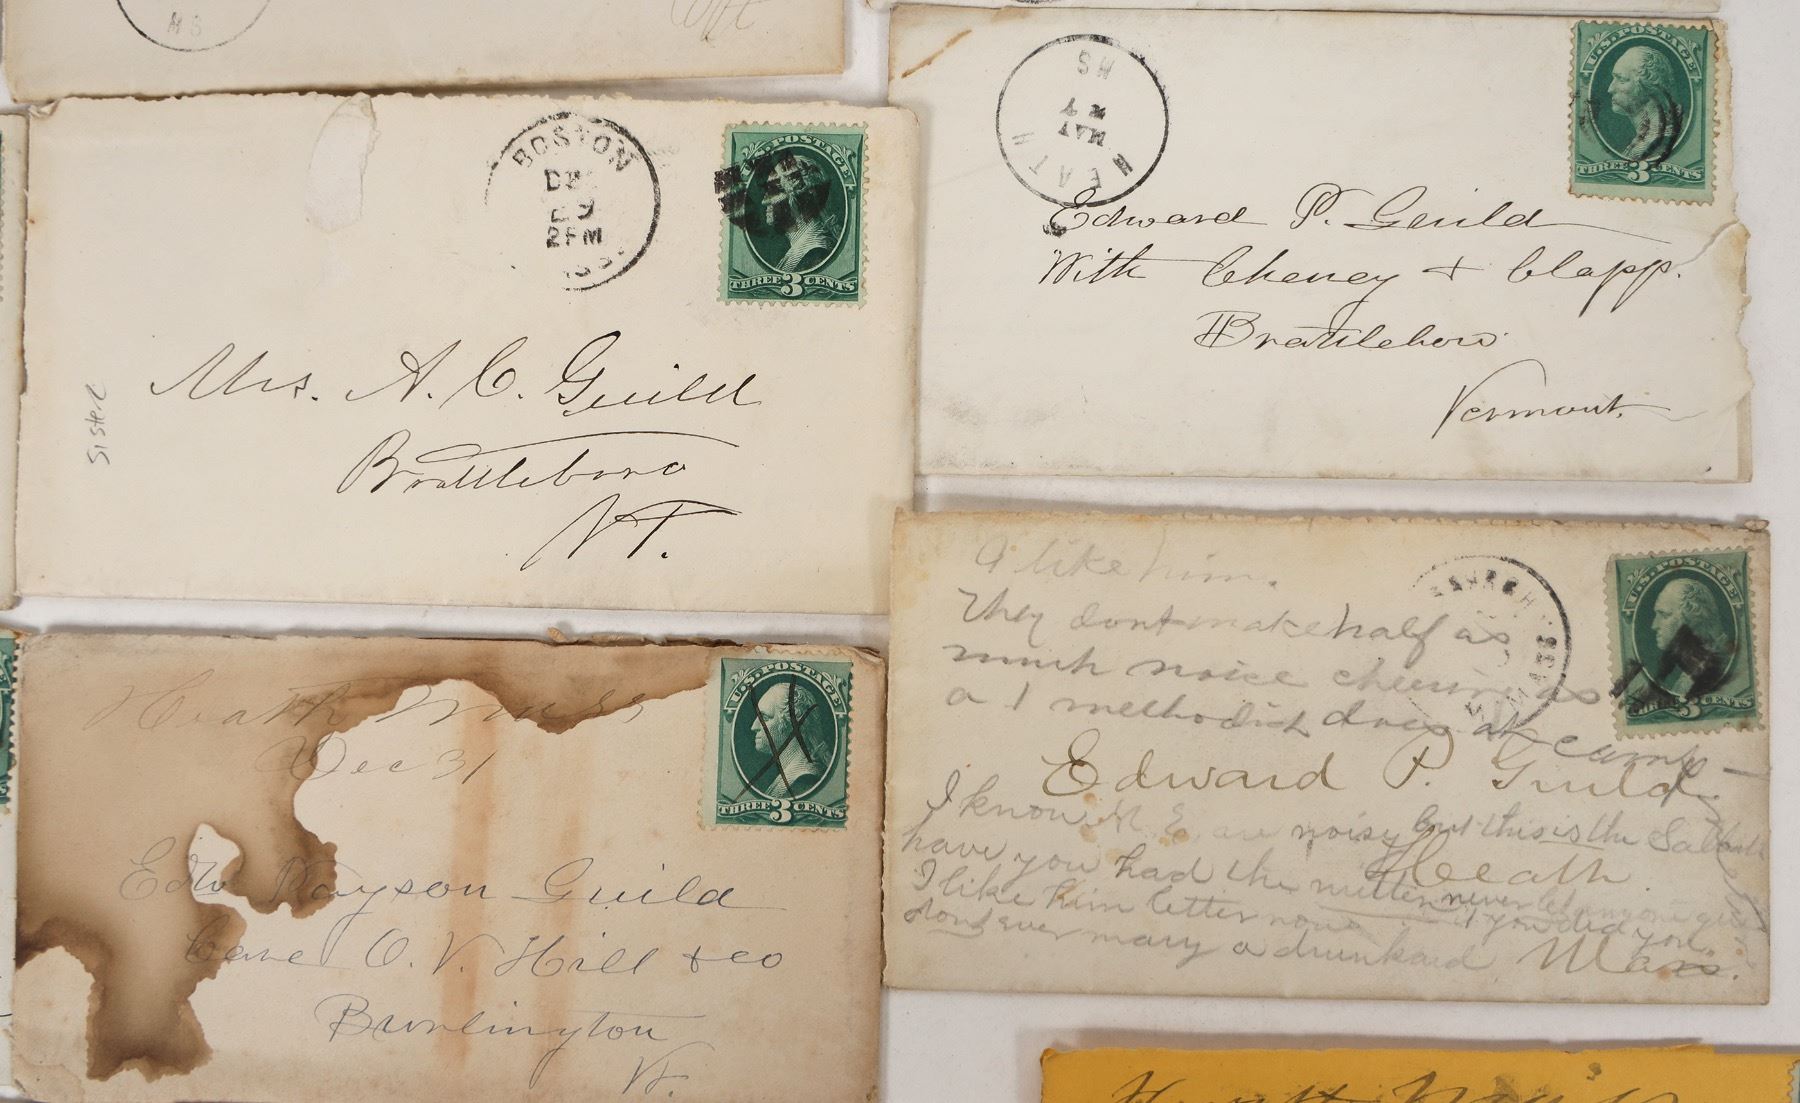 MS
BOSTON
DEC
29
2PM
U.S. POSTAGE
THREE 3 CENTS
Mrs. A. C. Guild
Brattleboro
VT.
Sister
HEATH
MAY
MS
U.S. POSTAGE
THREE 3 CENTS
Edward P. Guild
With Cheney & Clapp.
Brattleboro
Vermont.
Heath Mass
Dec 31
U.S. POSTAGE
THREE 3 CENTS
Edw Payson Guild
Care O. V. Hill & co
Burlington
Vt.
I like him.
They dont make half as
much noise cheering as
a 1 methodist does at camp
MASS
U.S. POSTAGE
THREE 3 CENTS
Edward P. Guild
I know M. E. are noisy but this is the Sabbath
Heath
have you had the mitten never let anyone give
I like him better now if you did you
dont ever marry a drunkard
Mass.